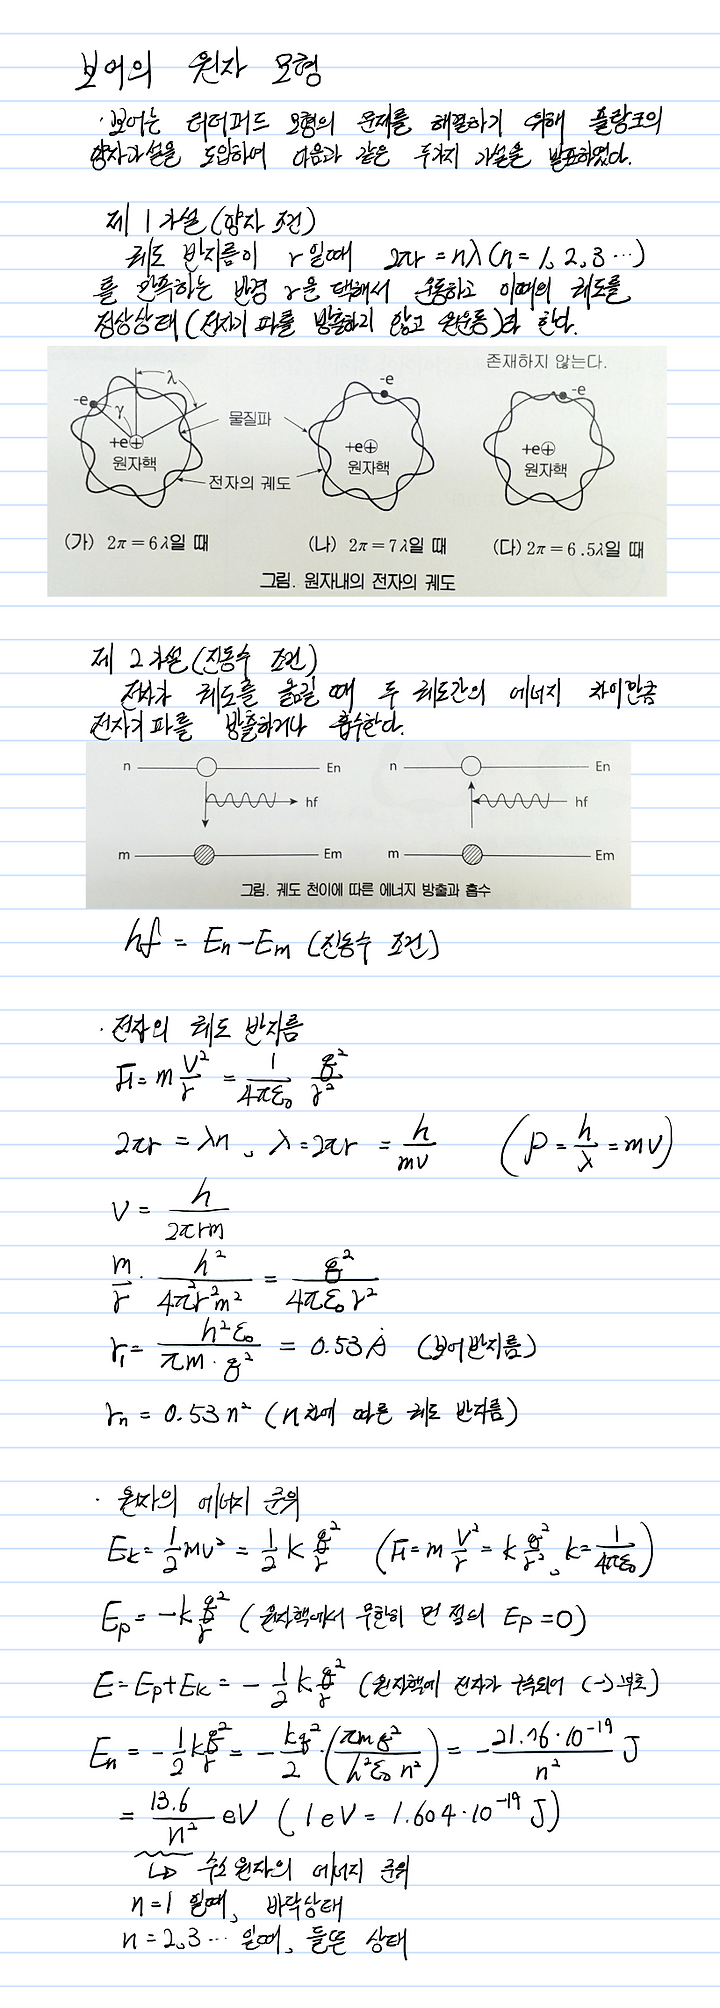 보어의 원자 모형
· 보어는 러더퍼드 모형의 문제를 해결하기 위해 플랑크의
양자가설을 도입하여 다음과 같은 두가지 가설을 발표하였다.
제 1 가설 (양자 조건)
궤도 반지름이 r 일때 2πr = nλ (n = 1, 2, 3 ⋯)
를 만족하는 반경 r을 택해서 운동하고 이때의 궤도를
정상상태 (전자기 파를 방출하지 않고 원운동)라 한다.
존재하지 않는다.
-e γ λ 물질파 -e -e
+e 원자핵 +e 원자핵 +e 원자핵
전자의 궤도
(가) 2π = 6λ일 때 (나) 2π = 7λ일 때 (다) 2π = 6.5λ일 때
그림. 원자내의 전자의 궤도
제 2 가설 (진동수 조건)
전자가 궤도를 옮길 때 두 궤도간의 에너지 차이만큼
전자기 파를 방출하거나 흡수한다.
n En n En
hf hf
m Em m Em
그림. 궤도 천이에 따른 에너지 방출과 흡수
hf = En - Em (진동수 조건)
· 전자의 궤도 반지름
F = m v²/r = 1/4πε₀ q²/r²
2πr = λn, λ = 2πr = h/mv (p = h/λ = mv)
v = h/2πrm
m/r · h²/4π²r²m² = q²/4πε₀r²
r₁ = h²ε₀/πm·q² = 0.53 Å (보어반지름)
rn = 0.53 n² (n 차에 따른 궤도 반지름)
· 원자의 에너지 준위
Ek = 1/2 mv² = 1/2 k q²/r (F = m v²/r = k q²/r², k = 1/4πε₀)
Ep = -k q²/r (원자핵에서 무한히 먼 점의 Ep = 0)
E = Ep + Ek = - 1/2 k q²/r (원자핵에 전자가 구속되어 (-) 부호)
En = - 1/2 k q²/r = - kq²/2 · (πmq²/h²ε₀n²) = - 21.76·10⁻¹⁹/n² J
= 13.6/n² eV (1eV = 1.604·10⁻¹⁹ J)
↳ 수소 원자의 에너지 준위
n = 1 일때, 바닥상태
n = 2, 3 ⋯ 일때, 들뜬 상태